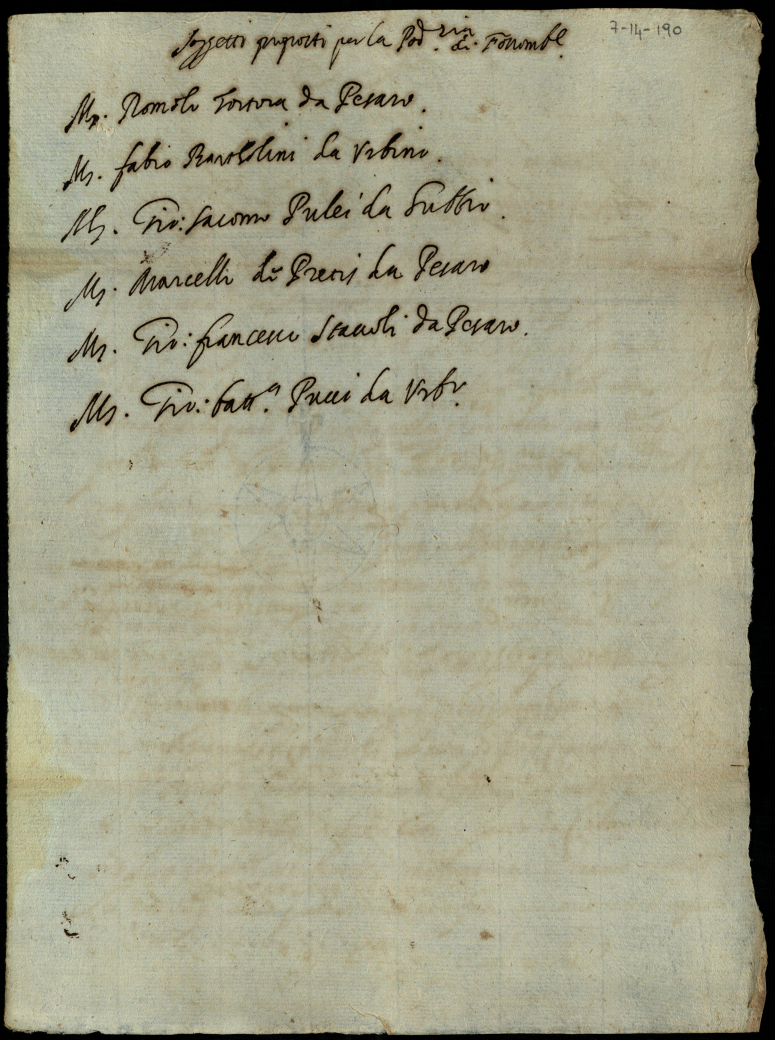 7-14-190
Soggetti proposti per la Pod.ria di Fossombe.
Mr. Romolo Tortora da Pesaro.
Mr. fabio Bartolini da Urbino.
Mr. Gio: Jacomo Pulei da Gubbio.
Mr. Marcello de Precis da Pesaro
Mr. Gio: francesco Staccoli da Pesaro.
Mr. Gio: batt.a Pucci da Urbo.